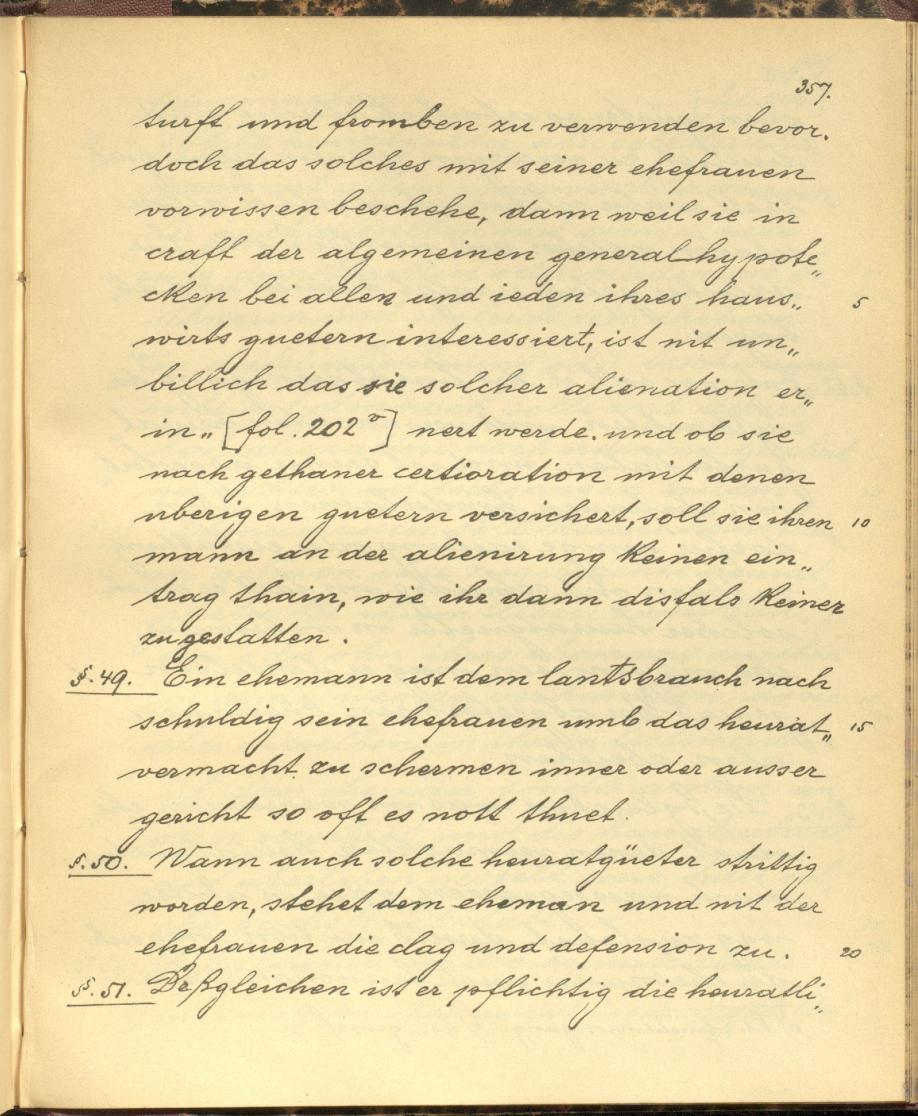 357.
turft und fromben zu verwenden bevor.
doch das solches mit seiner ehefrauen
vorwissen beschehe, dann weil sie in
craft der algemeinen general hypote„
cken bei allen und ieden ihres haus„
5
wirts guetern interessiert, ist nit un„
billich das sie solcher alienation er„
in„ [fol. 202v] nert werde. und ob sie
nach gethaner certioration mit denen
uberigen guetern versichert, soll sie ihren
10
mann an der alienirung keinen ein„
trag thain, wie ihr dann disfals keiner
zu gestatten.
§. 49. Ein ehemann ist dem lantsbrauch nach
schuldig sein ehefrauen umb das heurat„
15
vermacht zu schermen inner oder ausser
gericht so oft es nott thuet.
§. 50. Wann auch solche heuratgüeter strittig
worden, stehet dem eheman und nit der
ehefrauen die clag und defension zu.
20
§. 51. Deßgleichen ist er pflichtig die heuratli„